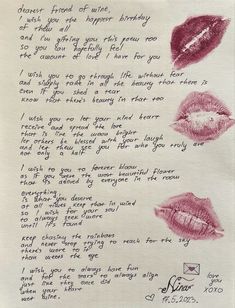 dearest friend of mine,
I wish you the happiest birthday
of them all
and I'm giving you this poem too
so you can hopefully feel
the amount of love I have for you
I wish you to go through life without fear
and slowly take in all the beauty that there is
even if you shed a tear
know that there's beauty in that too
I wish you to let your kind heart
receive and spread the love
that is like the bright
let others be blessed with your laugh
and let them see you for who you truly are
not only a half
I wish to you to forever bloom
as if you were the most beautiful flower
that is adored by everyone in the room
everything,
is what you deserve
at all times more than in need
so I wish for your soul
to always seek more
until it's found
keep chasing the rainbows
and never stop trying to reach for the sky
there's more to it
than meets the eye
I wish you to always have fun
and for the stars to always align
just like they once did
when your heart
met mine.
love
you
xoxo
17.5.2023.